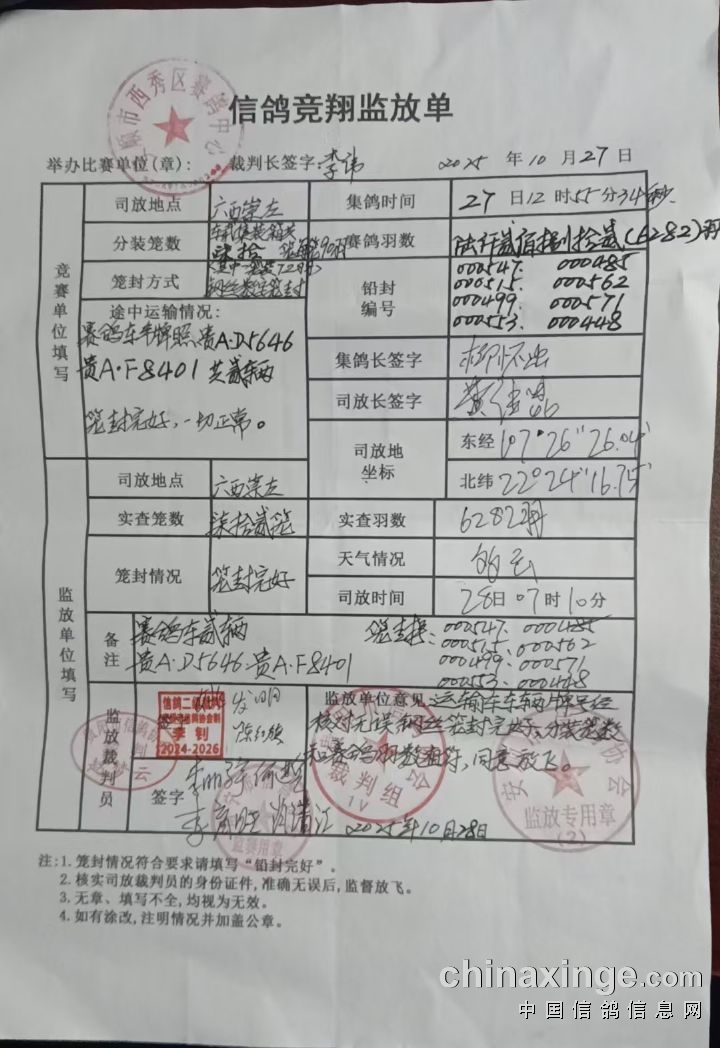 信鸽竞翔监放单
举办比赛单位(章): 裁判长签字: 2025 年 10 月 27 日
安顺市西秀区赛鸽中心
竞赛单位填写
司放地点 广西崇左 集鸽时间 27 日 12 时 55 分 34 秒
分装笼数 赛鸽羽数 陆仟贰佰捌拾贰(6282)羽
笼封方式 铅封编号
000547. 000485
000515. 000562
000499. 000571
000553. 000448
途中运输情况:
赛鸽车车牌照贵A·D5646
贵A·F8401 共贰辆
笼封完好,一切正常。
集鸽长签字
司放长签字
司放地坐标
东经 107°26"26.04"
北纬 22°24"16.75"
监放单位填写
司放地点 广西崇左
实查笼数 柒拾贰笼 实查羽数 6282羽
笼封情况 笼封完好 天气情况 多云
司放时间 28日 07 时 10 分
备注
赛鸽车贰辆
贵A·D5646·贵A·F8401
000547. 000485
000515. 000562
000499. 000571
000553. 000448
监放裁判员
信鸽二级裁判
李钊
2024-2026
签字
监放单位意见:运输车车辆牌号经
核对无误,钢丝笼封完好,分装笼数
和赛鸽羽数相符,同意放飞。
2025年10月28日
裁判组
监放专用章
(2)
注:1.笼封情况符合要求请填写“铅封完好”。
2.核实司放裁判员的身份证件,准确无误后,监督放飞。
3.无章、填写不全,均视为无效。
4.如有涂改,注明情况并加盖公章。
chinaxinge.com
中国信鸽信息网